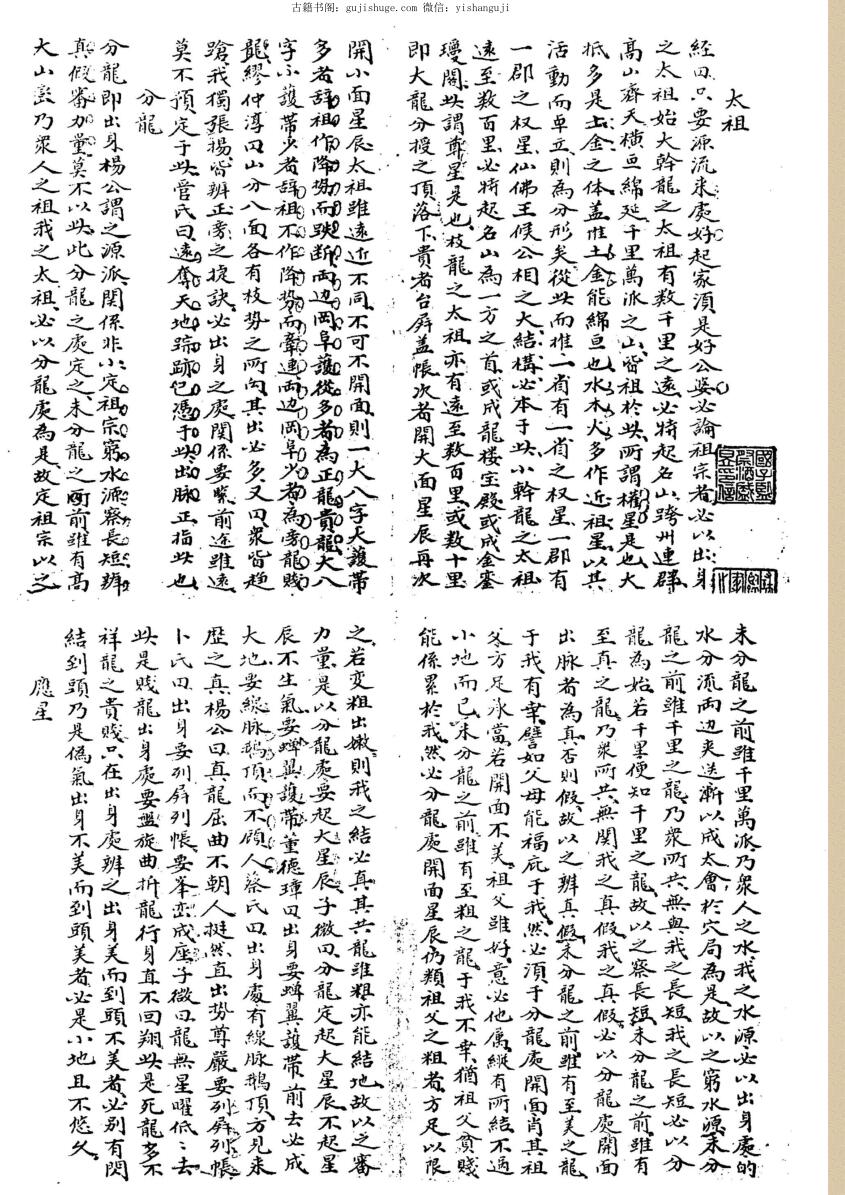 古籍书阁：gujishuge.com 微信：yishanguji
太祖
經曰只要源流来處好起家須是好公婆必論祖宗者必以出身
之太祖始大幹龍之太祖有数千里之遠必特起名山跨州連群
高山齊天横亘綿延千里萬派之山皆祖於此所謂權星是也大
抵多是土金之体盖惟土金能綿亘也水木火多作近祖星以其
活動而卓立則為分形矣從此而推一省有一省之权星一郡有
一郡之权星仙佛王候公相之大結構必本于此小幹龍之太祖
遠至数百里必特起名山為一方之首或成龍楼宝殿或成金鑾
瓊閣此謂尊星是也枝龍之太祖亦有遠至数百里或数十里
即大龍分授之頂落下貴者台屏盖帳次者開大面星辰再次
開小面星辰太祖雖遠近不同不可不開面則一大八字天護帶
多者辞祖作降势而跌断両边岡阜護從多者為正龍貴龍大八
字小護帶少者辞祖不作降勢而牽連両边岡阜少者為旁龍賤
龍繆仲淳曰山分八面各有枝势之所向其出必多又曰衆皆趋
蹌我獨張揚皆辨正旁之捷訣必出身之處関係要緊前途雖遠
莫不預定于此管氏曰遠奪天地踪跡已憑于此出脉正指此也
分龍
分龍即出身楊公謂之源派関係非小定祖宗窮水源察長短辨
真假審力量莫不以此此分龍之處定之未分龍之前雖有高
大山巒乃衆人之祖我之太祖必以分龍處為是故定祖宗以之
未分龍之前雖千里萬派乃衆人之水我之水源必以出身處的
水分流両边夹送漸以成太會於穴局為是故以之窮水源未分
龍之前雖千里之龍乃衆所共無與我之長短我之長短必以分
龍為始若千里便知千里之龍故以之察長短未分龍之前雖有
至真之龍乃衆所共無関我之真假我之真假必以分龍處開面
出脉者為真否則假故以之辨真假未分龍之前雖有至美之龍
于我有幸譬如父母能福庇于我然必須于分龍處開面肖其祖
父方足承當若開面不美祖父雖好意必他属縱有所結不過
小地而已未分龍之前雖有至粗之龍于我不幸猶祖父貧賤
能係累於我然必分龍處開面星辰仍類祖父之粗者方足以限
之若变粗出嫩則我之結必真其共龍雖粗亦能結地故以之審
力量是以分龍處要起大星辰子微曰分龍定起大星辰不起星
辰不生氣要蝉翼護帶董德璋曰出身要蝉翼護帶前去必成
大地要線脉鵝頂而不頋人蔡氏曰出身處有線脉鵝頂方見来
歴之真楊公曰真龍屈曲不朝人挺然直出势尊嚴要列屏列帳
卜氏曰出身要列屏列帳要峯巒成座子微曰龍無星曜低〻去
此是賤龍出身處要盤旋曲折龍行身直不回翔此是死龍多不
祥龍之貴賤只在出身處辨之出身美而到頭不美者必别有関
結到頭乃是僞氣出身不美而到頭美者必是小地且不悠久
應星